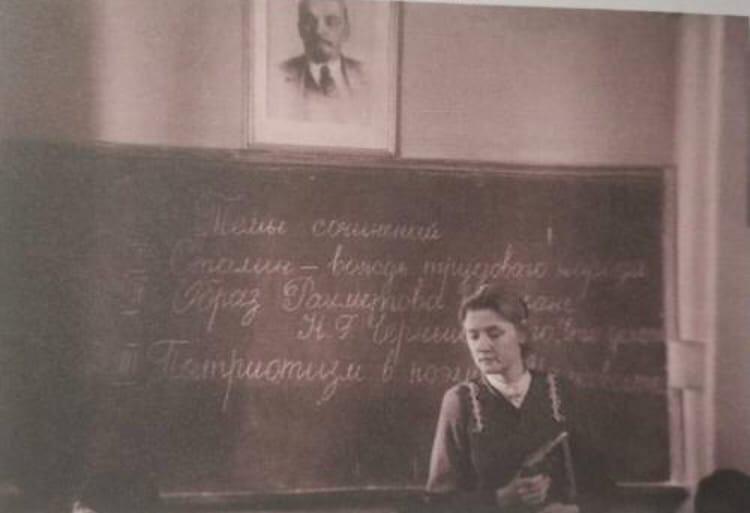 Темы сочинений
I Сталин – вождь трудового народа
II Образ Рахметова
Н. Г. Черныш
III Патриотизм в